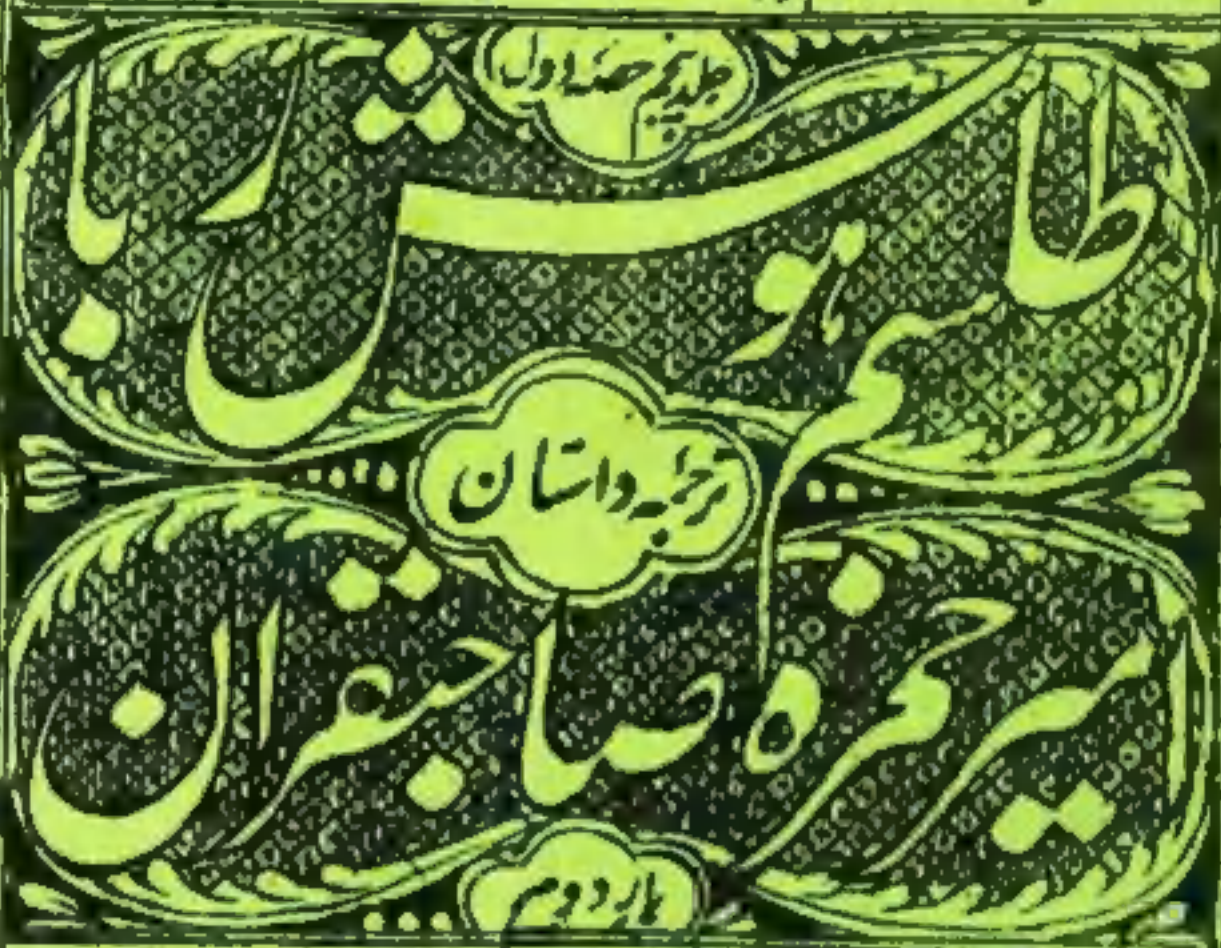 جلد پنجم حصہ اول
طلسم ہوش ربا
ترجمہ داستان
امیر حمزہ صاحبقران
بار دوم